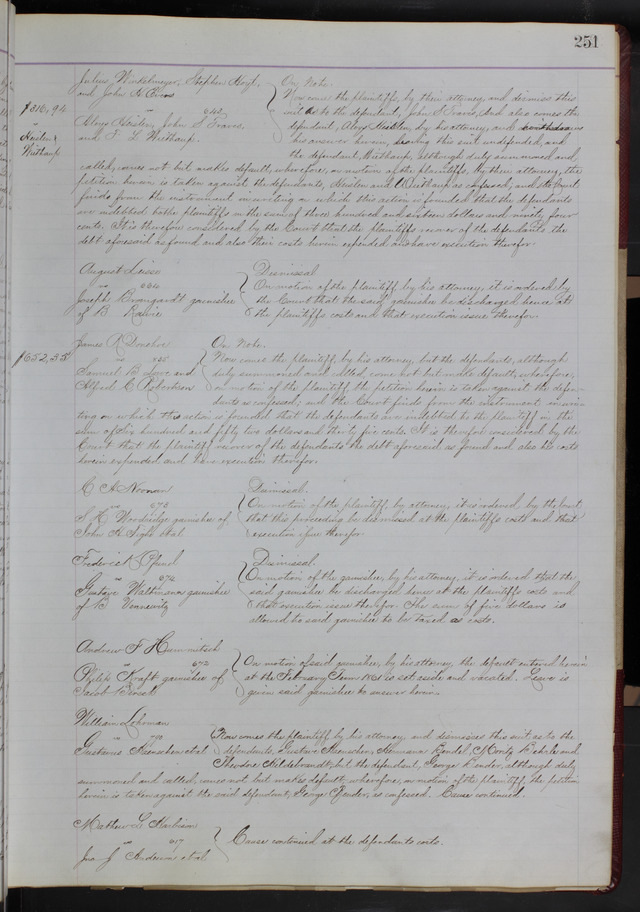 251
Julius Winkelmeyer, Stephen Hoyt, On Note.
and John H
Now come the plaintiffs, by their attorney and dismiss this
$316,94 vs 642 suit as to the defendant, John S Travis, And also comes the
Aloys Heislen, John S Travis, defendant, Aloys Heislen, by his attorney, and withdraws
Heislen & and F L Wirthaup his answer herein, leaving this suit undefended, and
Wirthaup the defendant, Wirthaup, although duly summoned and
called, comes not but makes default; wherefore, on motion of the plaintiffs, by their attorney, the
petition herein is taken against the defendants, Heislen and Wirthaup as confessed, and the Court
finds from the instrument in writing on which this action is founded that the defendants
are indebted to the plaintiffs in the sum of three hundred and sixteen dollars and ninety four
cents. It is therefore considered by the Court that the plaintiffs recover of the defendants the
debt aforesaid as found and also their costs herein expended and have execution therefor.
August Leisse Dismissal
vs 664 On motion of the plaintiff by his attorney, it is ordered by
Joseph garnishee the Court that the said garnishee be discharged hence at
of B the plaintiffs costs and that execution issue therefor.
James R Donohoe On Note.
$652,35 vs Now comes the plaintiff, by his attorney, but the defendants, although
Samuel B Love and duly summoned and called, come not but make default; wherefore,
Alfred C Robertson on motion of the plaintiff the petition herein is taken against the defen-
dants as confessed; and the Court finds from the instrument in wri-
ting on which this action is founded that the defendants are indebted to the plaintiff in the
sum of six hundred and fifty two dollars and thirty five cents. It is therefore considered by the
Court that the plaintiff recover of the defendants the debt aforesaid as found and also his costs
herein expended and have execution therefor.
C A Noonan Dismissal.
vs 673 On motion of the plaintiff, by attorney, it is ordered, by the Court
S H Woodbridge garnishee of that this proceeding be dismissed at the plaintiffs costs and that
John H et al. execution issue therefor
Frederick Dismissal.
vs 674 On motion of the garnishee, by his attorney, it is ordered that the
Gustave Waltmann garnishee said garnishee be discharged hence at the plaintiffs costs and
of B Vennewitz that execution issue therefor. The sum of five dollars is
allowed to said garnishee to be taxed as costs.
Andrew F Hummitsch
vs 672 On motion of said garnishee, by his attorney the default entered herein
Philip Kraft garnishee of at the February Term 1861 is set aside and vacated. Leave is
Jacob given said garnishee to answer herein.
William Lohman
vs 790 Now comes the plaintiff by his attorney, and dismisses this suit as to the
Gustavus Heinschen et al defendants, Gustave Heinschen, Hermann Bendel, Moritz and
Theodore Hildebrandt; but the defendant, George Bender, although duly
summoned and called, comes not but makes default; wherefore, on motion of the plaintiff, the petition
herein is taken against the said defendant, George Bender, as confessed. Cause continued.
Mathew L Harbison
vs 817 Cause continued at the defendants costs.
Jno J Anderson et al